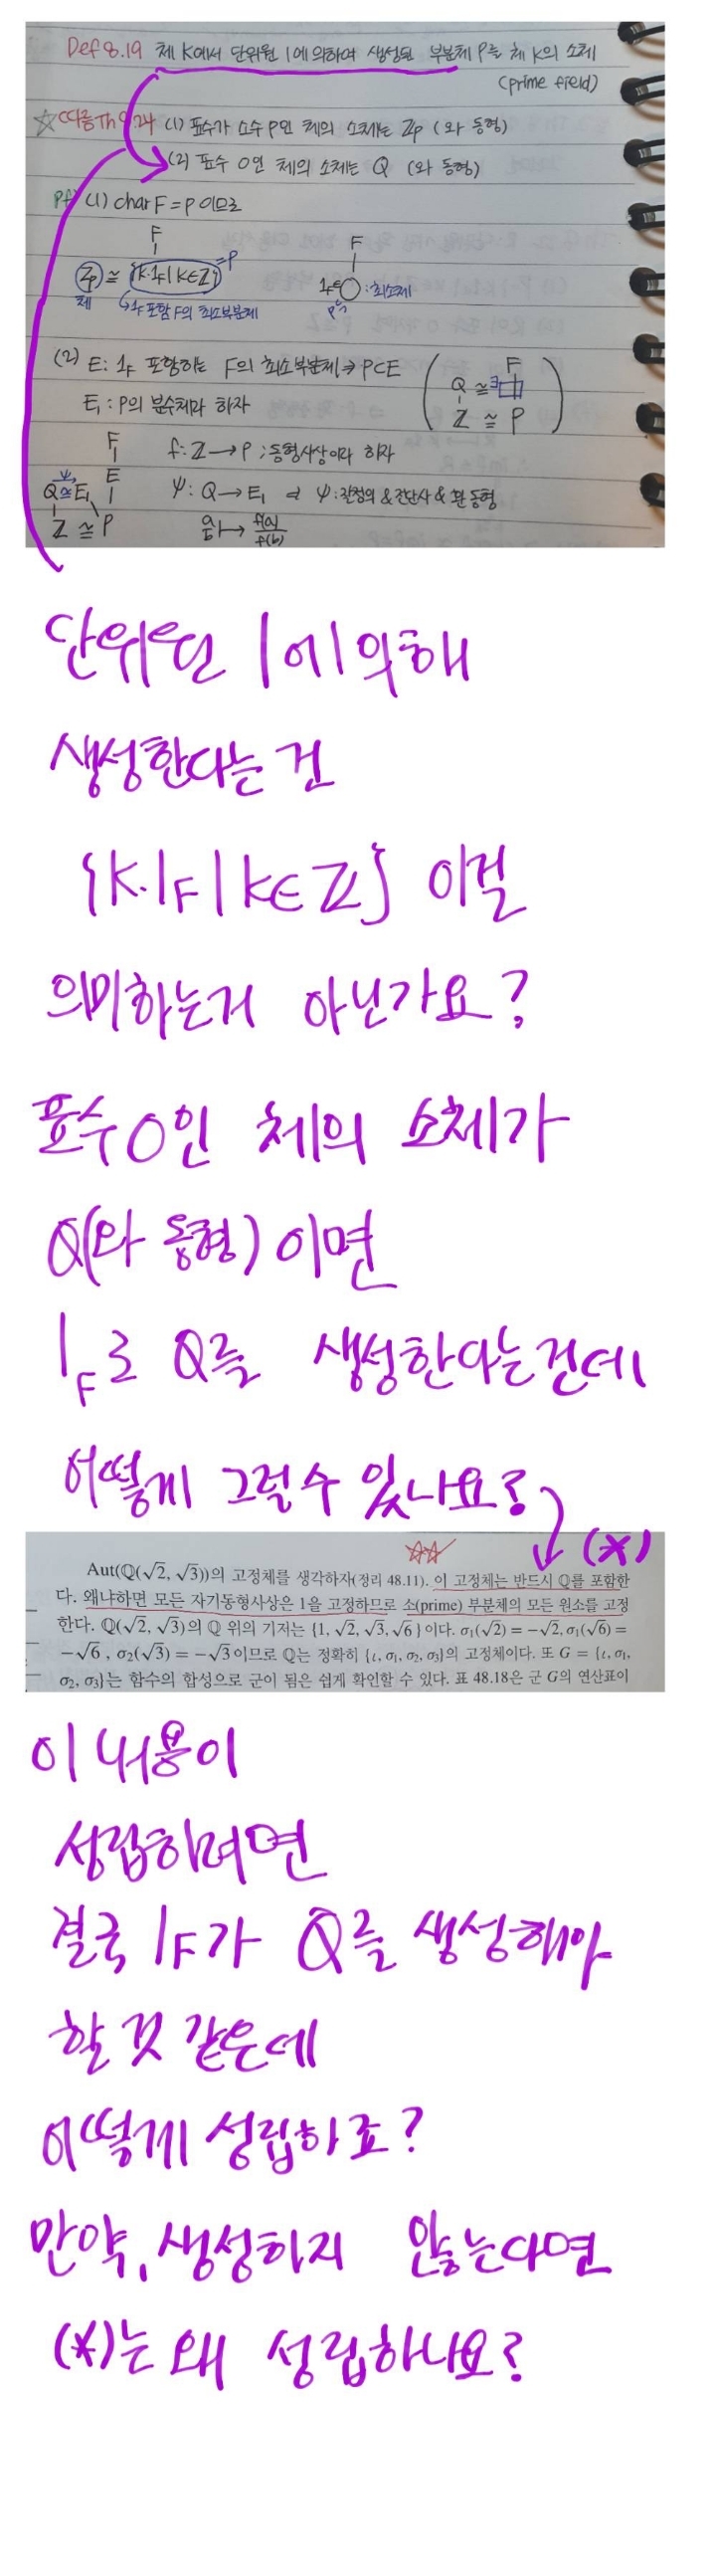 Def 8.19 체 K에서 단위원 1에 의하여 생성된 부분체 P를 체 K의 소체
(prime field)
☆따름Th 9.24 (1) 표수가 소수 p인 체의 소체는 Zp (와 동형)
(2) 표수 0인 체의 소체는 Q (와 동형)
pf) (1) char F = p 이므로
F
F
Zp ≅ {k·1F | k∈Z} = P
1F∈ :최소체
체
1F포함 F의 최소부분체
P
(2) E: 1F 포함하는 F의 최소부분체 ⇒ P⊂E
E1 : P의 분수체라 하자
F
Q ≅ ∃
Z ≅ P
F
f: Z → P ; 동형사상이라 하자
ψ E
Q ≅ E1
ψ: Q → E1 ψ: 잘정의 & 전단사 & 환동형
Z ≅ P
a/b ↦ f(a)/f(b)
단위원 1에 의해
생성한다는 건
{k·1F | k∈Z} 이걸
의미하는거 아닌가요?
표수 0인 체의 소체가
Q(와 동형)이면
1F로 Q를 생성한다는건데
어떻게 그럴 수 있나요?
(*)
☆☆
Aut(Q(√2, √3))의 고정체를 생각하자(정리 48.11). 이 고정체는 반드시 Q를 포함한
다. 왜냐하면 모든 자기동형사상은 1을 고정하므로 소(prime) 부분체의 모든 원소를 고정
한다. Q(√2, √3)의 Q 위의 기저는 {1, √2, √3, √6}이다. σ1(√2) = −√2, σ1(√6) =
−√6, σ2(√3) = −√3이므로 Q는 정확히 {ι, σ1, σ2, σ3}의 고정체이다. 또 G = {ι, σ1,
σ2, σ3}는 함수의 합성으로 군이 됨은 쉽게 확인할 수 있다. 표 48.18은 군 G의 연산표이
이 내용이
성립하려면
결국 1F가 Q를 생성해야
할 것 같은데
어떻게 성립하죠?
만약, 생성하지 않는다면
(*)는 왜 성립하나요?